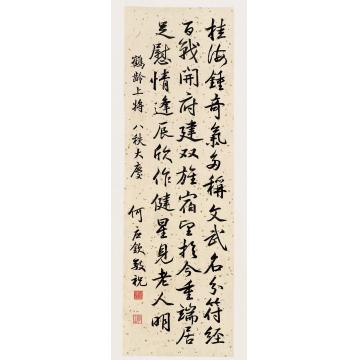 桂海鍾奇氣多稱文武名分符經
百戰開府建双旌宿望於今重端居
足慰情逢辰欣作健星見老人明
鶴齡上將 八秩大慶
何应欽敬祝